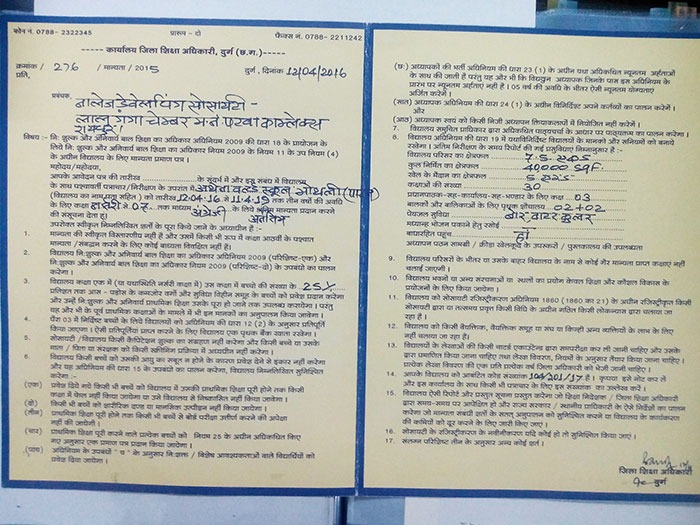 फोन नं. 0788- 2322345 प्रारूप - दो फैक्स नं. 0788- 2211242
----- कार्यालय जिला शिक्षा अधिकारी, दुर्ग (छ.ग.) -----
क्रमांक / 276 / मान्यता / 2015 दुर्ग , दिनांक 12/04/2016
प्रति,
प्रबंधक
नालेज डेवेलपिंग सोसायटी -
लालू गंगा चेम्बर
काम्प्लेक्स
रायपुर।
विषय :- नि: शुल्क और अनिवार्य बाल शिक्षा का अधिकार अधिनियम 2009 की धारा 18 के प्रायोजन के
लिये नि. शुल्क और अनिवार्य बाल शिक्षा का अधिकार नियम 2009 के नियम 11 के उप नियम (4)
के अधीन विद्यालय के लिए मान्यता प्रमाण पत्र।
महोदय/महोदया,
आपके आवेदन पत्र की तारीख ............ के सुंदर्भ में और इस संबंध में विद्यालय
के साथ पश्चातवर्ती पत्राचार/निरीक्षण के उपरांत में
(विद्यालय का नाम पता सहित) को तारीख 12.04.16 से 11.4.19 तक तीन वर्षों की अवधि
के लिए कक्षा नर्सरी से 07 तक माध्यम अंग्रेजी के लिये मान्यता प्रदान करने
की संसूचना देता हूं।
उपरोक्त स्वीकृत निम्नलिखित शर्तों के पूरा किये जाने के अध्याधीन है :-
1. मान्यता की स्वीकृत विस्तारणीय नहीं है और उसमें किसी भी रूप में कक्षा आठवीं के पश्चात
मान्यता/संबद्धन करने के लिए कोई बाध्यता विवक्षित नहीं है।
2. विद्यालय नि:शुल्क और अनिवार्य बाल शिक्षा का अधिकार अधिनियम 2009 (परिशिष्ट-एक) और
नि:शुल्क और अनिवार्य बाल शिक्षा का अधिकार नियम 2009 (परिशिष्ट-दो) के उपबंधों का पालन
करेगा।
3. विद्यालय कक्षा एक में (या यथास्थिति नर्सरी कक्षा में) उस कक्षा में बच्चों की संख्या के 25%
प्रतिशत तक आस - पड़ोस के कमजोर वर्गों और सुविधा विहीन समूह के बच्चों को प्रवेश प्रदान करेगा
और उन्हें नि:शुल्क और अनिवार्य प्राथमिक शिक्षा उसके पूरी हो जाने तक उपलब्ध करायेगा। परन्तु
यह और भी के पूर्व प्राथमिक कक्षाओं के मामले में भी इन मानकों का अनुपालन किया जायेगा।
4. पैरा 03 में निर्दिष्ट बच्चों के लिये विद्यालयों को अधिनियम की धारा 12 (2) के अनुसार प्रतिपूर्ति
किया जाएगा। ऐसी प्रतिपूर्तियां प्राप्त करने के लिए विद्यालय एक पृथक बैंक खाता रखेगा।
5. सोसायटी / विद्यालय किसी कैपिटेशन शुल्क का संग्रहण नहीं करेगा और किसी बच्चे या उसके
माता / पिता या संरक्षक को किसी स्क्रीनिंग प्रक्रिया में अध्यधीन नहीं करेगा।
6. विद्यालय किसी बच्चे को उसकी आयु का सबूत न होने के कारण प्रवेश देने से इंकार नहीं करेगा
और यह अधिनियम की धारा 15 के उपबंधों का पालन करेगा, विद्यालय निम्नलिखित सुनिश्चित
करेगा :-
(एक) प्रवेश दिये गये किसी भी बच्चे को विद्यालय में उसकी प्राथमिक शिक्षा पूरी होने तक किसी
कक्षा में फेल नहीं किया जायेगा या उसे विद्यालय से निष्कासित नहीं किया जायेगा।
(दो) किसी भी बच्चे को शारीरिक दण्ड या मानसिक उत्पीड़न नहीं किया जायेगा।
(तीन) प्राथमिक शिक्षा पूरी होने तक किसी भी बच्चे से बोर्ड परीक्षा उत्तीर्ण करने की अपेक्षा
नहीं की जायेगी।
(चार) प्राथमिक शिक्षा पूरी करने वाले प्रत्येक बच्चों को नियम 25 के अधीन अधिकथित किए
गए अनुसार एक प्रमाण पत्र प्रदान किया जायेगा।
(पांच) अधिनियम के उपबंधों "च" के अनुसार नि:शक्त / विशेष आवश्यकताओं वाले विद्यार्थियों को
प्रवेश दिया जायेगा।
(छ:) अध्यापकों की भर्ती अधिनियम की धारा 23 (1) के अधीन यथा अधिकथित न्यूनतम अर्हताओं
के साथ की जाती है परंतु यह और भी कि विद्यमान अध्यापक जिनके पास इस अधिनियम के
प्रारंभ पर न्यूनतम अर्हताएं नहीं है। 05 वर्ष की अवधि के भीतर ऐसी न्यूनतम योग्यताएं
अर्जित करेंगें।
(सात) अध्यापक अधिनियम की धारा 24 (1) के अधीन विनिर्दिष्ट अपने कर्तव्यों का पालन करेंगे
और
(आठ) अध्यापक स्वयं को किसी निजी अध्यापन क्रियाकलापों में नियोजित नहीं करेगें।
7. विद्यालय समुचित प्राधिकार द्वारा अधिकथित पाठ्यचर्या के आधार पर पाठ्यक्रम का पालन करेगा।
8. विद्यालय अधिनियम की धारा 19 में यथाविनिर्दिष्ट विद्यालयों के मानकों और सनियमों को बनाये
रखेगा। अंतिम निरीक्षण के समय रिपोर्ट की गई प्रसुविधाएं निम्नानुसार है :-
विद्यालय परिसर का क्षेत्रफल 7.5 एकड़
कुल निर्मित का क्षेत्रफल 40000 sqf.
खेल के मैदान का क्षेत्रफल 5 एकड़
कक्षाओं की संख्या 30
प्रधानपाठक-सह-कार्यालय-सह-भण्डार के लिए कक्ष 03
बालकों और बालिकाओं के लिए पृथक शौचालय 02+02
पेयजल सुविधा बोर, वाटर कूलर
मध्यान्ह भोजन पकाने हेतु रसोई
बाधारहित पहुंच हाँ
अध्यापन पठन सामग्री / क्रीड़ा खेलकूद के उपस्करों / पुस्तकालय की उपलब्धता
9. विद्यालय परिसरों के भीतर या उसके बाहर विद्यालय के नाम से कोई गैर मान्यता प्राप्त कक्षाएं नहीं
चलाई जाएगी।
10. विद्यालय भवनों या अन्य संरचनाओं या स्थलों का प्रयोग केवल शिक्षा और कौशल विकास के
प्रयोजनों के लिए किया जायेगा।
11. विद्यालय को सोसायटी रजिस्ट्रीकरण अधिनियम 1860 (1860 का 21) के अधीन रजिस्ट्रीकृत किसी
सोसायटी द्वारा या तत्समय प्रवृत्त किसी विधि के अधीन गठित किसी लोकन्यास द्वारा चलाया जा
रहा है।
12. विद्यालय को किसी वैयक्तिक, वैयक्तिक समूह या संघ या किन्हीं अन्य व्यक्तियों के लाभ के लिए
नहीं चलाया जा रहा है।
13. विद्यालयों के लेखाओं की किसी चार्टर्ड एकाउंटेन्ट द्वारा समपरीक्षा कर ली जानी चाहिए और उसके
द्वारा प्रमाणित किया जाना चाहिए तथा लेखा विवरण, नियमों के अनुसार तैयार किया जाना चाहिए।
प्रत्येक लेखा विवरण की एक प्रति प्रत्येक वर्ष जिला शिक्षा अधिकारी को भेजी जानी चाहिए।
14. आपके विद्यालय को आबंटित कोड संख्यांक है। कृपया इसे नोट कर लें
और इस कार्यालय के साथ किसी भी पत्राचार के लिए इस संख्यांक का उल्लेख करें।
15. विद्यालय ऐसी रिपोर्ट और प्रस्तुत सूचना प्रस्तुत करेगा जो शिक्षा निदेशक / जिला शिक्षा अधिकारी
द्वारा समय-समय पर अपेक्षित हो और राज्य सरकार / स्थानीय प्राधिकारी के ऐसे निर्देशों का पालन
करेगा जो मान्यता संबंधी शर्तों के सतत् अनुपालन को सुनिश्चित करने या विद्यालय के कार्यकरण
की कमियों को दूर करने के लिए जारी किए जाएं।
16. सोसायटी के रजिस्ट्रीकरण के नवीनीकरण यदि कोई हो तो सुनिश्चित किया जाएं।
17. संलग्न परिशिष्ट तीन के अनुसार अन्य कोई शर्त।
जिला शिक्षा अधिकारी
दुर्ग